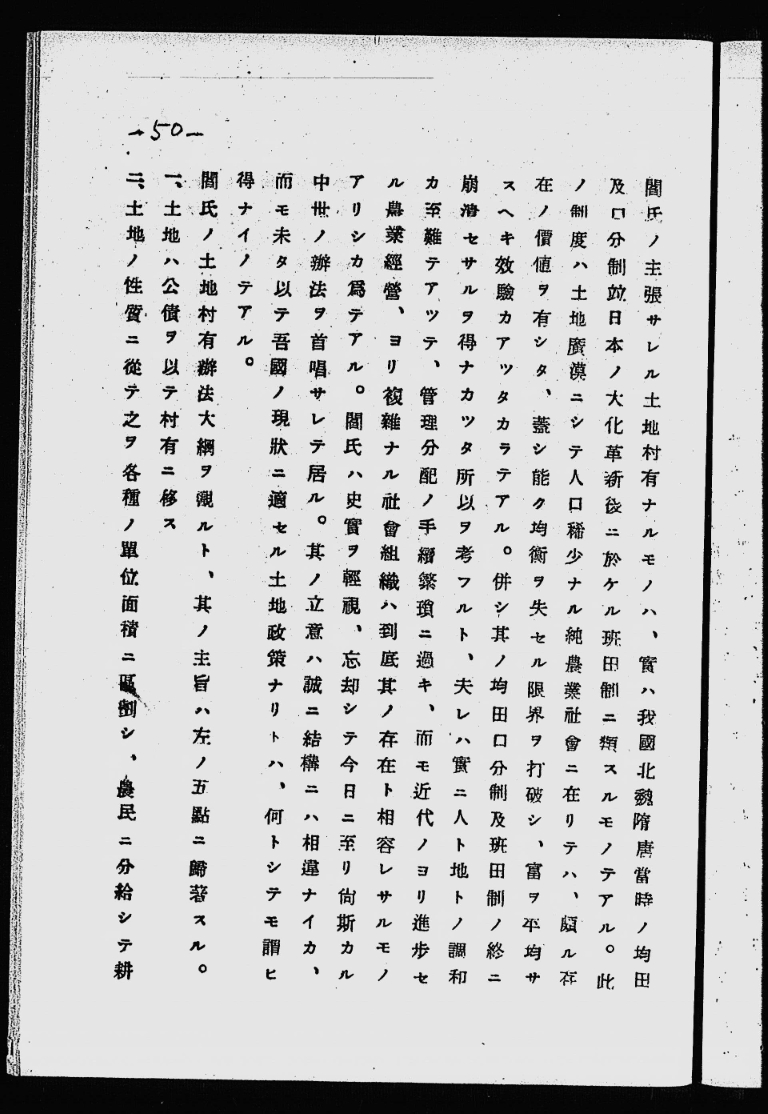 —50—
閻氏ノ主張サレル土地村有ナルモノハ、實ハ我國北魏隋唐當時ノ均田
及口分制竝日本ノ大化革新後ニ於ケル班田制ニ類スルモノテアル。此
ノ制度ハ土地廣漠ニシテ人口稀少ナル純農業社會ニ在リテハ、頗ル存
在ノ價値ヲ有シタ、蓋シ能ク均衡ヲ失セル限界ヲ打破シ、富ヲ平均サ
スヘキ效驗カアツタカラテアル。併シ其ノ均田口分制及班田制ノ終ニ
崩潰セサルヲ得ナカツタ所以ヲ考フルト、夫レハ實ニ人ト地トノ調和
カ至難テアツテ、管理分配ノ手續繁瑣ニ過キ、而モ近代ノヨリ進歩セ
ル農業經營、ヨリ複雜ナル社會組織ハ到底其ノ存在ト相容レサルモノ
アリシカ爲テアル。閻氏ハ史實ヲ輕視、忘却シテ今日ニ至リ尙斯カル
中世ノ辦法ヲ首唱サレテ居ル。其ノ立意ハ誠ニ結構ニハ相違ナイカ、
而モ未タ以テ吾國ノ現狀ニ適セル土地政策ナリトハ、何トシテモ謂ヒ
得ナイノテアル。
閻氏ノ土地村有辦法大綱ヲ覗ルト、其ノ主旨ハ左ノ五點ニ歸著スル。
一、土地ハ公債ヲ以テ村有ニ移ス
二、土地ノ性質ニ從テ之ヲ各種ノ單位面積ニ區劃シ、農民ニ分給シテ耕